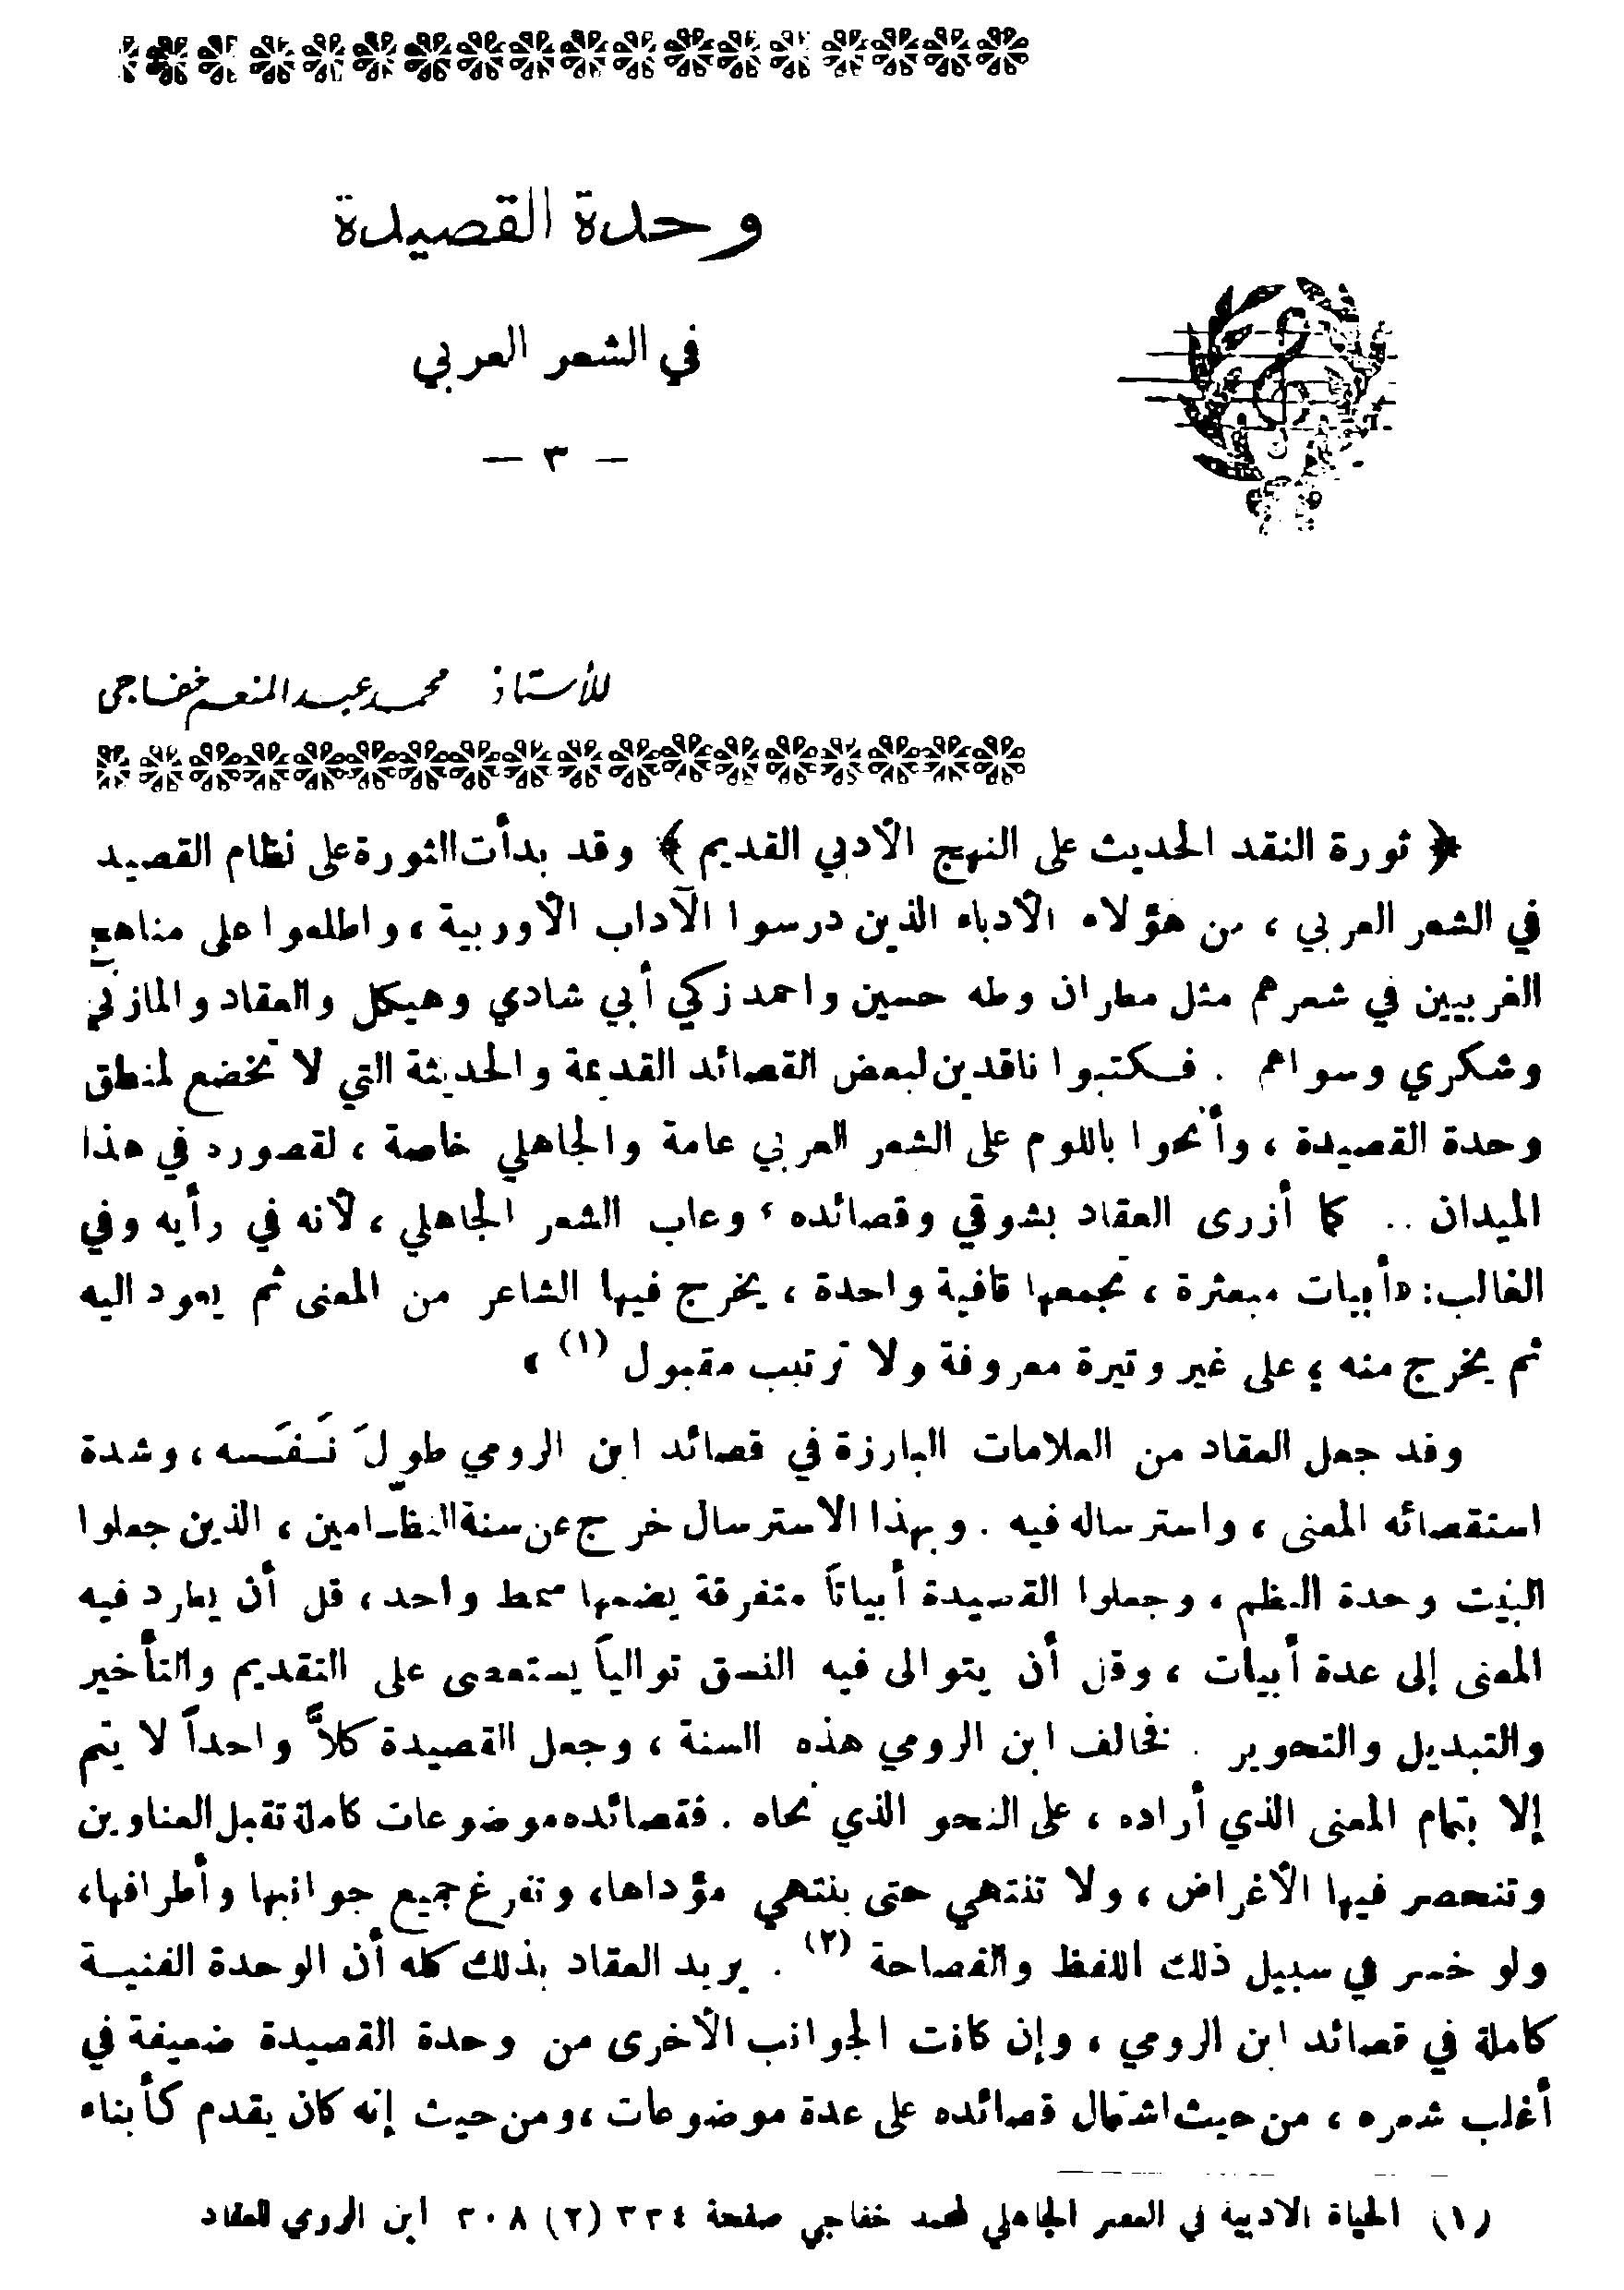 وحدة القصيدة
في الشعر العربي
— ٣ —
للأستاذ محمد عبد المنعم خفاجي
﴿ ثورة النقد الحديث على النهج الأدبي القديم ﴾ وقد بدأت الثورة على نظام القصيد
في الشعر العربي ، من هؤلاء الأدباء الذين درسوا الآداب الأوربية ، واطلعوا على مناهج
الغربيين في شعرهم مثل مطران وطه حسين واحمد زكي أبي شادي وهيكل والعقاد والمازني
وشكري وسواهم . فكتبوا ناقدين لبعض القصائد القديمة والحديثة التي لا تخضع لمنطق
وحدة القصيدة ، وأنحوا باللوم على الشعر العربي عامة والجاهلي خاصة ، لقصوره في هذا
الميدان .. كما أزرى العقاد بشوقي وقصائده ، وعاب الشعر الجاهلي ، لأنه في رأيه وفي
الغالب: «أبيات مبعثرة ، تجمعها قافية واحدة ، يخرج فيها الشاعر من المعنى ثم يعود اليه
ثم يخرج منه ؛ على غير وتيرة معروفة ولا ترتيب مقبول (١) »
وقد جعل العقاد من العلامات البارزة في قصائد ابن الرومي طولَ نَفَسه ، وشدة
استقصائه المعنى ، واسترساله فيه . وبهذا الاسترسال خرج عن سنة النظّامين ، الذين جعلوا
البيت وحدة النظم ، وجعلوا القصيدة أبياتاً متفرقة يضمها سمط واحد ، قل أن يطرد فيه
المعنى إلى عدة أبيات ، وقل أن يتوالى فيه النسق توالياً يستعصى على التقديم والتأخير
والتبديل والتحوير . فخالف ابن الرومي هذه السنة ، وجعل القصيدة كلاًّ واحداً لا يتم
إلا بتمام المعنى الذي أراده ، على النحو الذي نحاه . فقصائده موضوعات كاملة تقبل العناوين
وتنحصر فيها الأغراض ، ولا تنتهي حتى ينتهي مؤداها ، وتفرغ جميع جوانبها وأطرافها ،
ولو خسر في سبيل ذلك اللفظ والفصاحة (٢) . يريد العقاد بذلك كله أن الوحدة الفنية
كاملة في قصائد ابن الرومي ، وإن كانت الجوانب الأخرى من وحدة القصيدة ضعيفة في
أغلب شعره ، من حيث اشتمال قصائده على عدة موضوعات ، ومن حيث إنه كان يقدم كأبناء
(١) الحياة الادبية في العصر الجاهلي لمحمد خفاجي صفحة ٣٢٤ (٢) ٢٠٨ ابن الرومي للعقاد